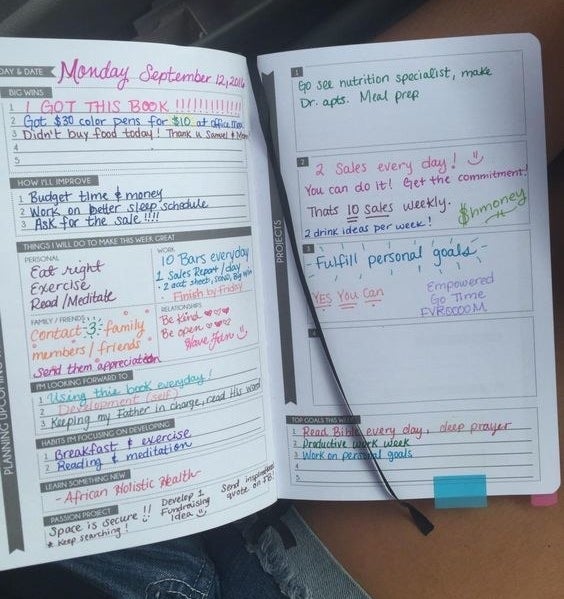 DAY & DATE
Monday September 12, 2016
BIG WINS
1 I GOT THIS BOOK !!!!!!!!!!!!!
2 Got $30 color pens for $10 at office max
3 Didn't buy food today! Thank u Samuel & Mom
4
5
HOW I'LL IMPROVE
1 Budget time & money
2 Work on better sleep schedule
3 Ask for the sale !!!!
THINGS I WILL DO TO MAKE THIS WEEK GREAT
PERSONAL
Eat right
Exercise
Read/Meditate
WORK
10 Bars everyday
1 Sales Report/day
Finish by friday
FAMILY / FRIENDS
Contact 3 family
members / friends
Send them appreciation
RELATIONSHIPS
Be kind ♡♡♡
Be open ♡♡♡
Have fun
I'M LOOKING FORWARD TO
1 Using this book everyday!
2 Development (self)
3 Keeping my Father in charge, read His word
HABITS I'M FOCUSING ON DEVELOPING
1 Breakfast & exercise
2 Reading & meditation
LEARN SOMETHING NEW
- African Holistic Health
PASSION PROJECT
Space is secure !!
* Keep searching!
Develop 1
Fundraising
Idea
Send inspirational
quote on
PLANNING UPCOMING
PROJECTS
1
Go see nutrition specialist, make
Dr. apts. Meal prep
2
2 Sales every day!
You can do it! Get the commitment!
Thats 10 sales weekly.
$hmoney
2 drink ideas per week!
3
-Fulfill personal goals-
YES YOU Can
Empowered
Go Time
4
TOP GOALS THIS WEEK
1 Read Bible every day, deep prayer
2 Productive work week
3 Work on personal goals
4
5